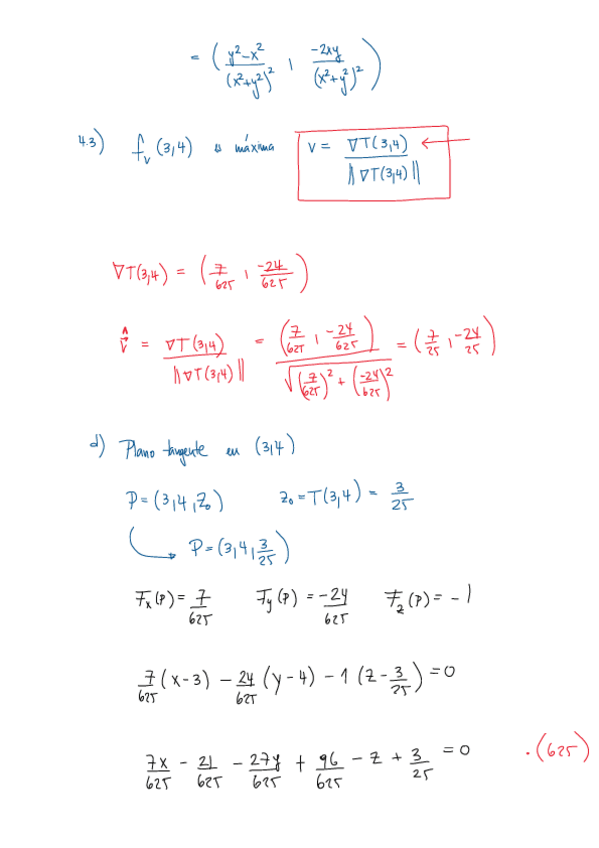 = ( \frac{y^2-x^2}{(x^2+y^2)^2} , \frac{-2xy}{(x^2+y^2)^2} )
4.3) f_v (3,4) es máxima v = \frac{∇T(3,4)}{||∇T(3,4)||} ←
∇T(3,4) = ( \frac{7}{625} , \frac{-24}{625} )
\hat{\vec{v}} = \frac{∇T(3,4)}{||∇T(3,4)||} = \frac{( \frac{7}{625} , \frac{-24}{625} )}{\sqrt{(\frac{7}{625})^2 + (\frac{-24}{625})^2}} = ( \frac{7}{25} , \frac{-24}{25} )
d) Plano tangente en (3,4)
P = (3,4,z_0) z_0 = T(3,4) = \frac{3}{25}
→ P = (3,4,\frac{3}{25})
F_x(P) = \frac{7}{625} F_y(P) = \frac{-24}{625} F_z(P) = -1
\frac{7}{625}(x-3) - \frac{24}{625}(y-4) - 1(z-\frac{3}{25}) = 0
\frac{7x}{625} - \frac{21}{625} - \frac{27y}{625} + \frac{96}{625} - z + \frac{3}{25} = 0 ·(625)